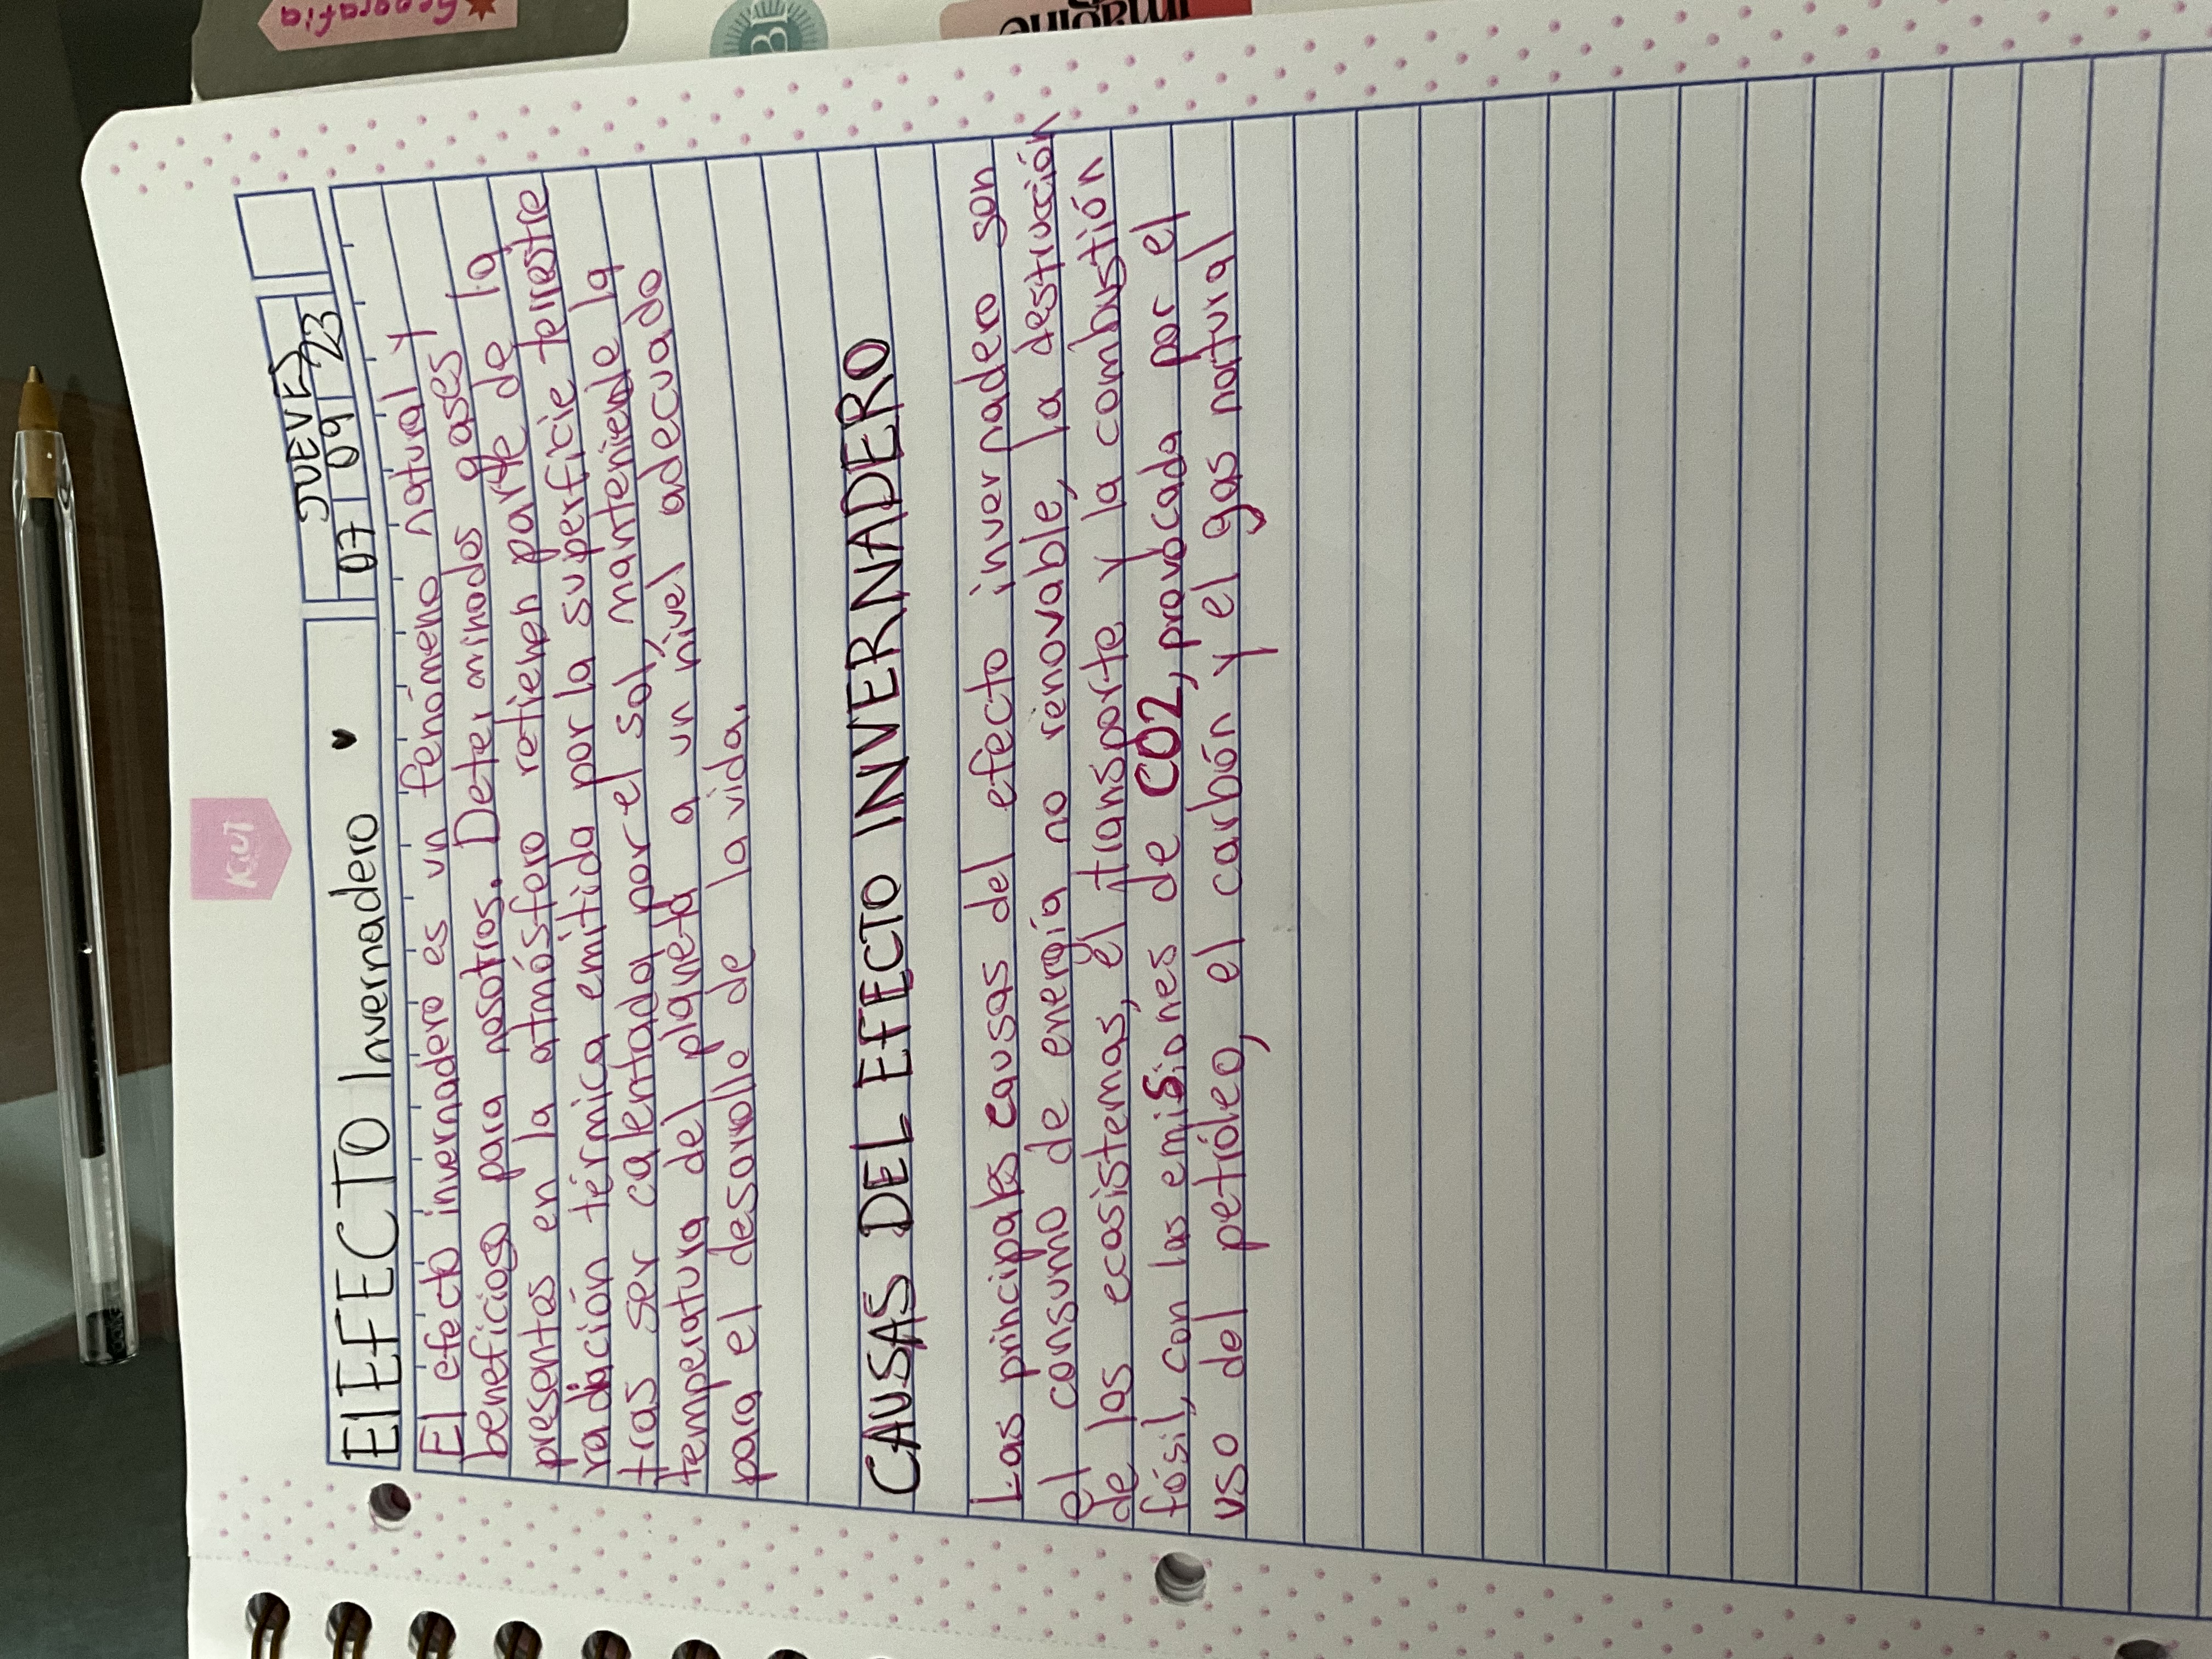 Geografía
B
imagine
KUT
JUEVES
07 09 23
El EFECTO Invernadero
El efecto invernadero es un fenómeno natural y
beneficioso para nosotros. Determinados gases
presentes en la atmósfera retienen parte de la
radiación térmica emitida por la superficie terrestre
tras ser calentada por el sol, manteniendo la
temperatura del planeta a un nivel adecuado
para el desarrollo de la vida.
CAUSAS DEL EFECTO INVERNADERO
Las principales causas del efecto invernadero son
el consumo de energía no renovable, la destrucción
de las ecosistemas, el transporte y la combustión
fósil, con las emisiones de CO2, provocada por el
uso del petróleo, el carbón y el gas natural